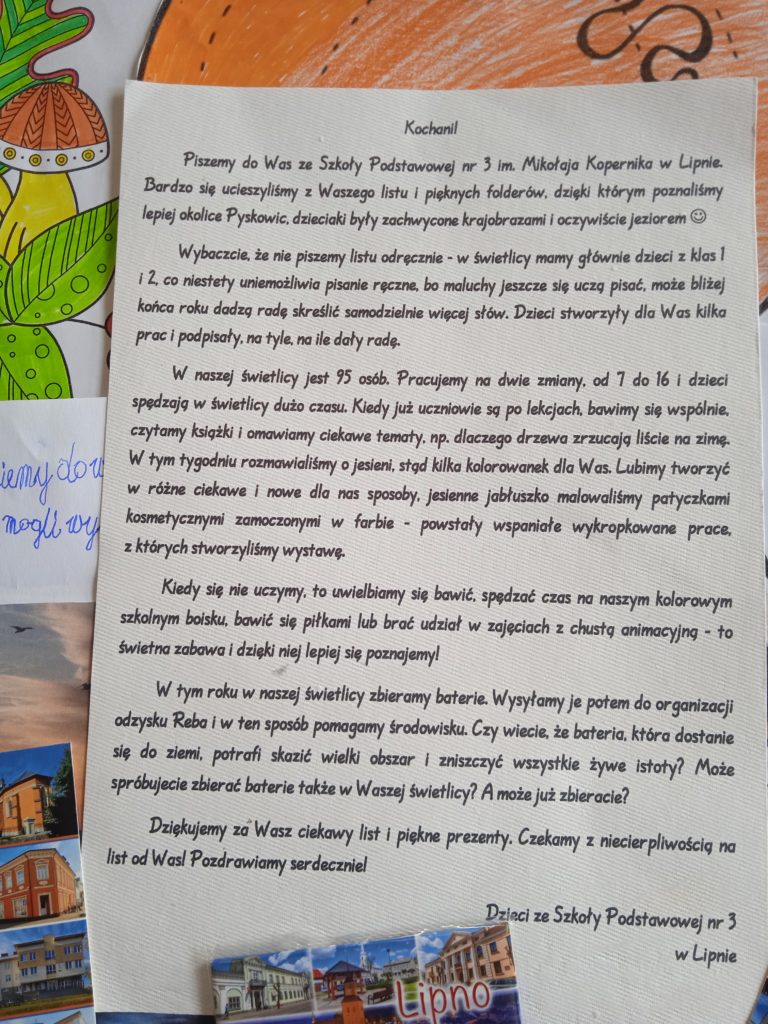 Kochani!
Piszemy do Was ze Szkoły Podstawowej nr 3 im. Mikołaja Kopernika w Lipnie.
Bardzo się ucieszyliśmy z Waszego listu i pięknych folderów, dzięki którym poznaliśmy
lepiej okolice Pyskowic, dzieciaki były zachwycone krajobrazami i oczywiście jeziorem ☺
Wybaczcie, że nie piszemy listu odręcznie - w świetlicy mamy głównie dzieci z klas 1
i 2, co niestety uniemożliwia pisanie ręczne, bo maluchy jeszcze się uczą pisać, może bliżej
końca roku dadzą radę skreślić samodzielnie więcej słów. Dzieci stworzyły dla Was kilka
prac i podpisały, na tyle, na ile dały radę.
W naszej świetlicy jest 95 osób. Pracujemy na dwie zmiany, od 7 do 16 i dzieci
spędzają w świetlicy dużo czasu. Kiedy już uczniowie są po lekcjach, bawimy się wspólnie,
czytamy książki i omawiamy ciekawe tematy, np. dlaczego drzewa zrzucają liście na zimę.
W tym tygodniu rozmawialiśmy o jesieni, stąd kilka kolorowanek dla Was. Lubimy tworzyć
w różne ciekawe i nowe dla nas sposoby, jesienne jabłuszko malowaliśmy patyczkami
kosmetycznymi zamoczonymi w farbie - powstały wspaniałe wykropkowane prace,
z których stworzyliśmy wystawę.
Kiedy się nie uczymy, to uwielbiamy się bawić, spędzać czas na naszym kolorowym
szkolnym boisku, bawić się piłkami lub brać udział w zajęciach z chustą animacyjną - to
świetna zabawa i dzięki niej lepiej się poznajemy!
W tym roku w naszej świetlicy zbieramy baterie. Wysyłamy je potem do organizacji
odzysku Reba i w ten sposób pomagamy środowisku. Czy wiecie, że bateria, która dostanie
się do ziemi, potrafi skazić wielki obszar i zniszczyć wszystkie żywe istoty? Może
spróbujecie zbierać baterie także w Waszej świetlicy? A może już zbieracie?
Dziękujemy za Wasz ciekawy list i piękne prezenty. Czekamy z niecierpliwością na
list od Was! Pozdrawiamy serdecznie!
Dzieci ze Szkoły Podstawowej nr 3
w Lipnie
Lipno